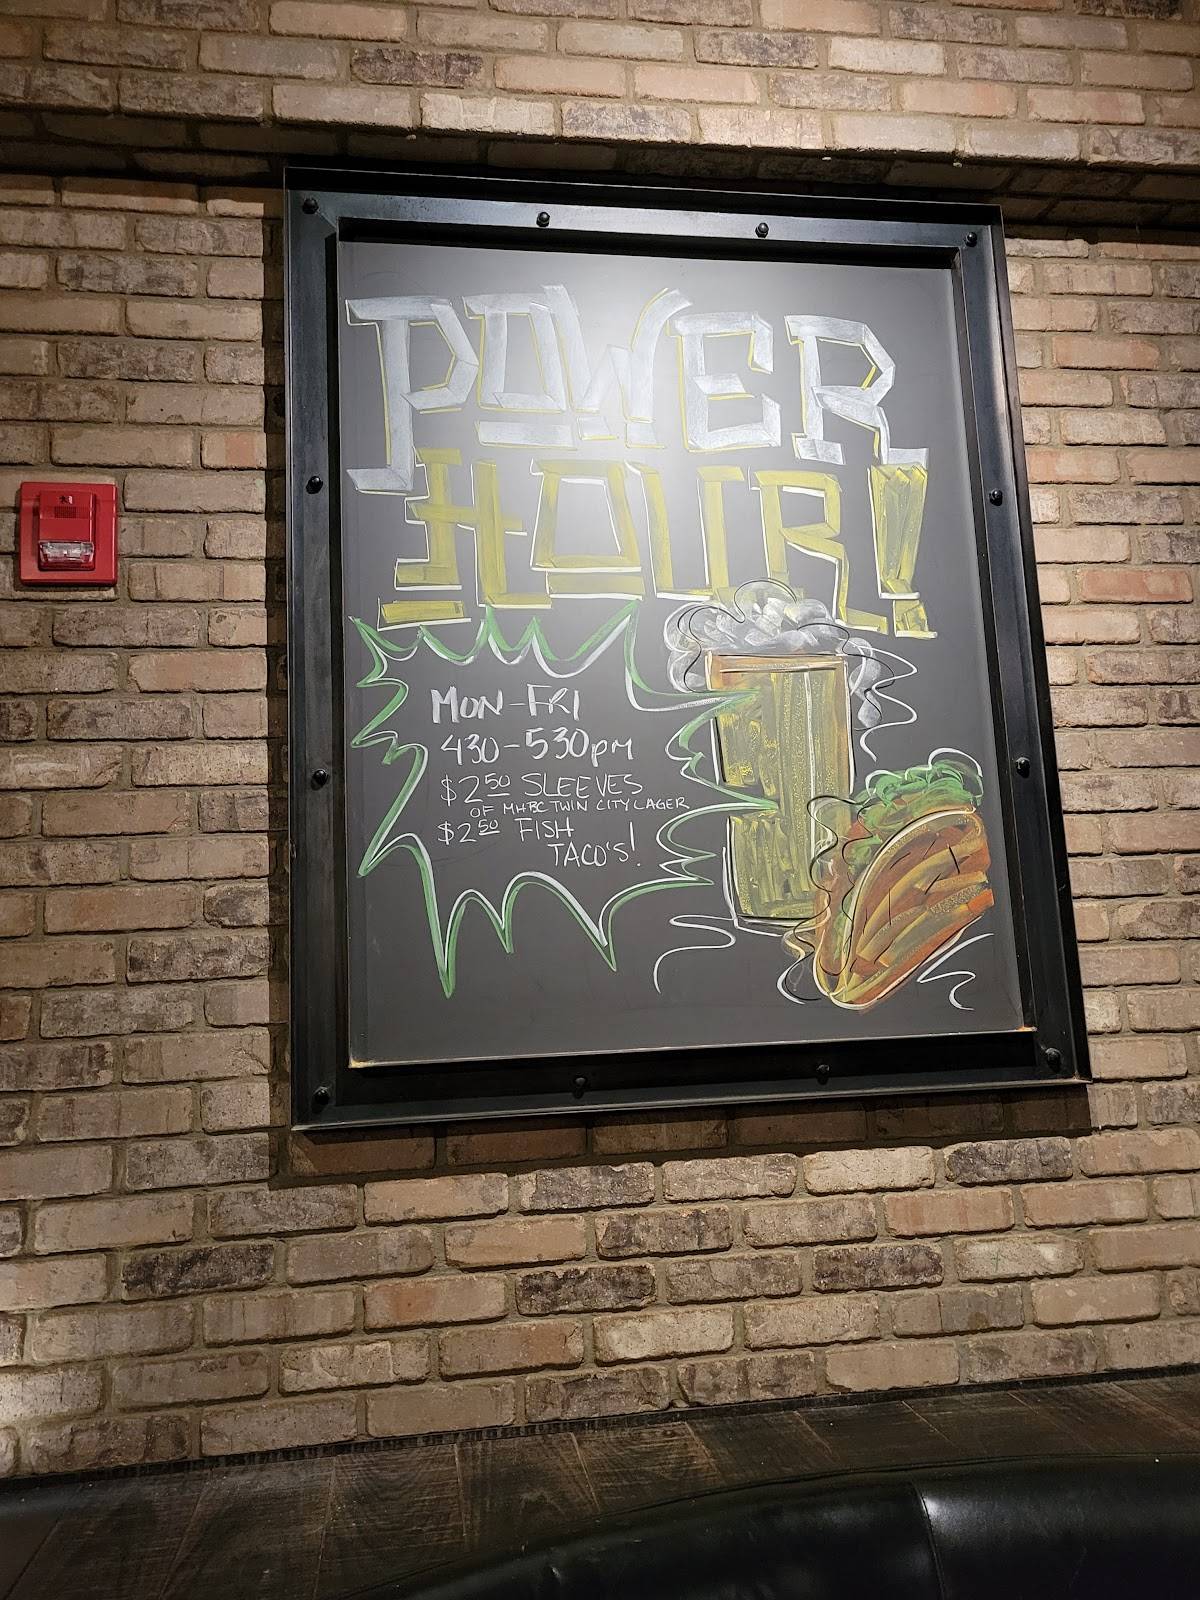 POWER
HOUR!
MON-FRI
430-530pm
$2.50 SLEEVES
OF MHBC TWIN CITY LAGER
$2.50 FISH
TACO'S!